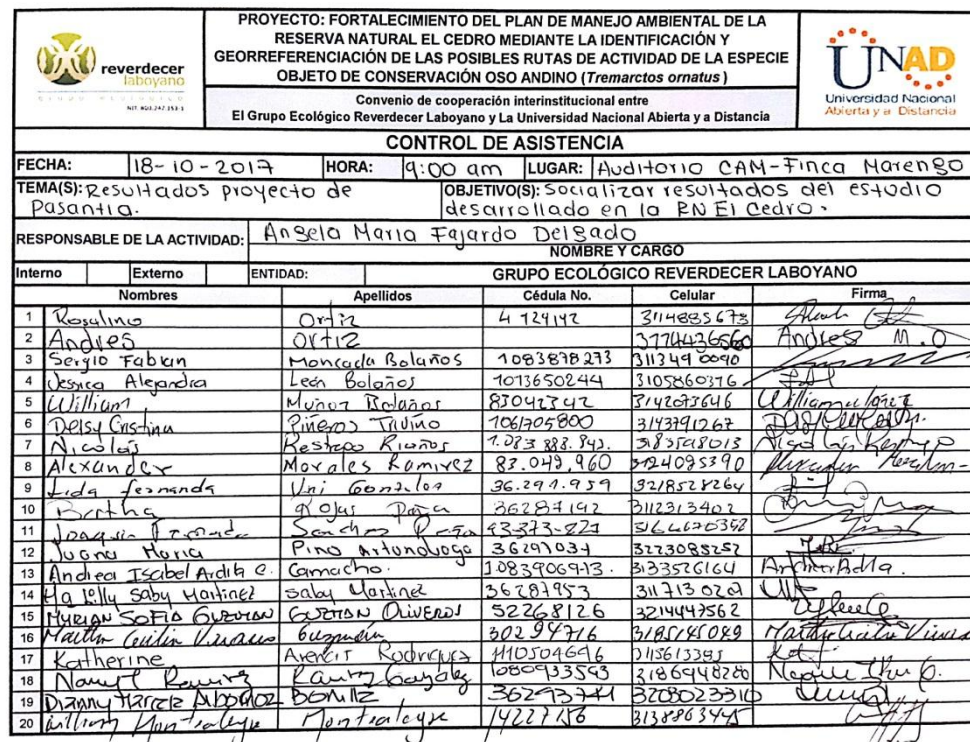 reverdecer
laboyano
GRUPO ECOLÓGICO
NIT. 800.247.353-1
PROYECTO: FORTALECIMIENTO DEL PLAN DE MANEJO AMBIENTAL DE LA
RESERVA NATURAL EL CEDRO MEDIANTE LA IDENTIFICACIÓN Y
GEORREFERENCIACIÓN DE LAS POSIBLES RUTAS DE ACTIVIDAD DE LA ESPECIE
OBJETO DE CONSERVACIÓN OSO ANDINO (Tremarctos ornatus)
Convenio de cooperación interinstitucional entre
El Grupo Ecológico Reverdecer Laboyano y La Universidad Nacional Abierta y a Distancia
UNAD
Universidad Nacional
Abierta y a Distancia
CONTROL DE ASISTENCIA
FECHA: 18-10-2017 HORA: 9:00 am LUGAR: Auditorio CAM-Finca Marengo
TEMA(S): Resultados proyecto de
Pasantia.
OBJETIVO(S): Socializar resultados del estudio
desarrollado en la RN El Cedro.
RESPONSABLE DE LA ACTIVIDAD: Angela Maria Fajardo Delgado
NOMBRE Y CARGO
Interno Externo ENTIDAD: GRUPO ECOLÓGICO REVERDECER LABOYANO
Nombres Apellidos Cédula No. Celular Firma
1 Rosalino Ortiz 4 124142 3114885673
2 Andres Ortiz 3174436560 Andres M.O
3 Sergio Fabian Moncada Bolaños 1083878273 3113490090
4 Jessica Alejandra León Bolaños 1013650244 3105860376
5 William Muñoz Bolaños 83042342 3142073646
6 Deisy Cristina Piñeros Triviño 1061705800 3143791267
7 Nicolás Restrepo 1.083 888.843. 3183598013 Nicolás Restrepo
8 Alexander Morales Ramirez 83.049,960 3124095390
9 Lida fernanda Uni Gonzalez 36.291.959 3218528264
10 Bertha Rojas 36287192 3112313402
11 Joaquin Sanchez
12 Juana Maria Pino Artunduaga 36297034 3223088252
13 Andrea Isabel Ardila C. Camacho. 1083906913. 3133526164
14 Ma Lilly Saby Martinez Saby Martinez 36287953 3117130201
15 MYRIAN SOFIA GUZMAN GUZMAN OLIVEROS 52268126 3214447562
16 Martha Cecilia 30294716 3185145049 Martha Cecilia
17 Katherine Rodriguez 1110504646 3115613385
18 1080933593 3186948280
19 Dianny Marcela Albornoz Bonilla 36293741 3208023310
20 William Montealegre Montealegre 14227156 3138863445